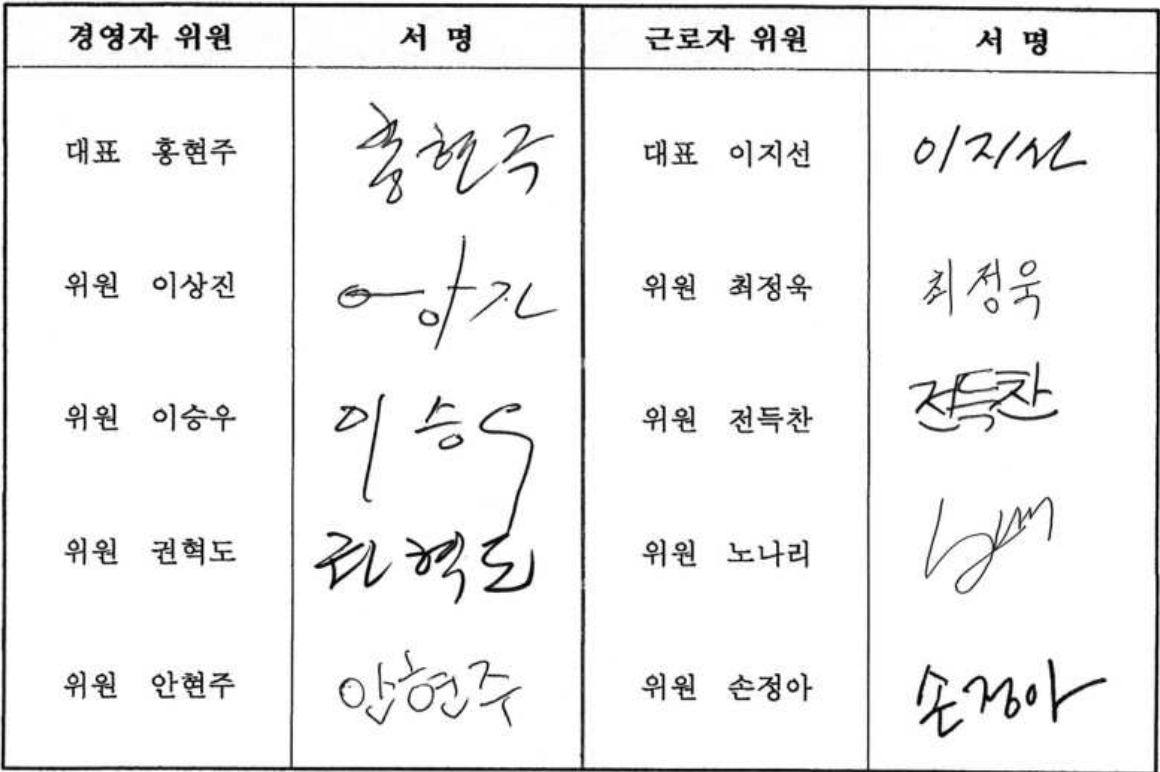 경영자 위원 서 명 근로자 위원 서 명
대표 홍현주 홍현주 대표 이지선 이지선
위원 이상진 위원 최정욱 최정욱
위원 이승우 이승우 위원 전득찬 전득찬
위원 권혁도 권혁도 위원 노나리
위원 안현주 안현주 위원 손정아 손정아